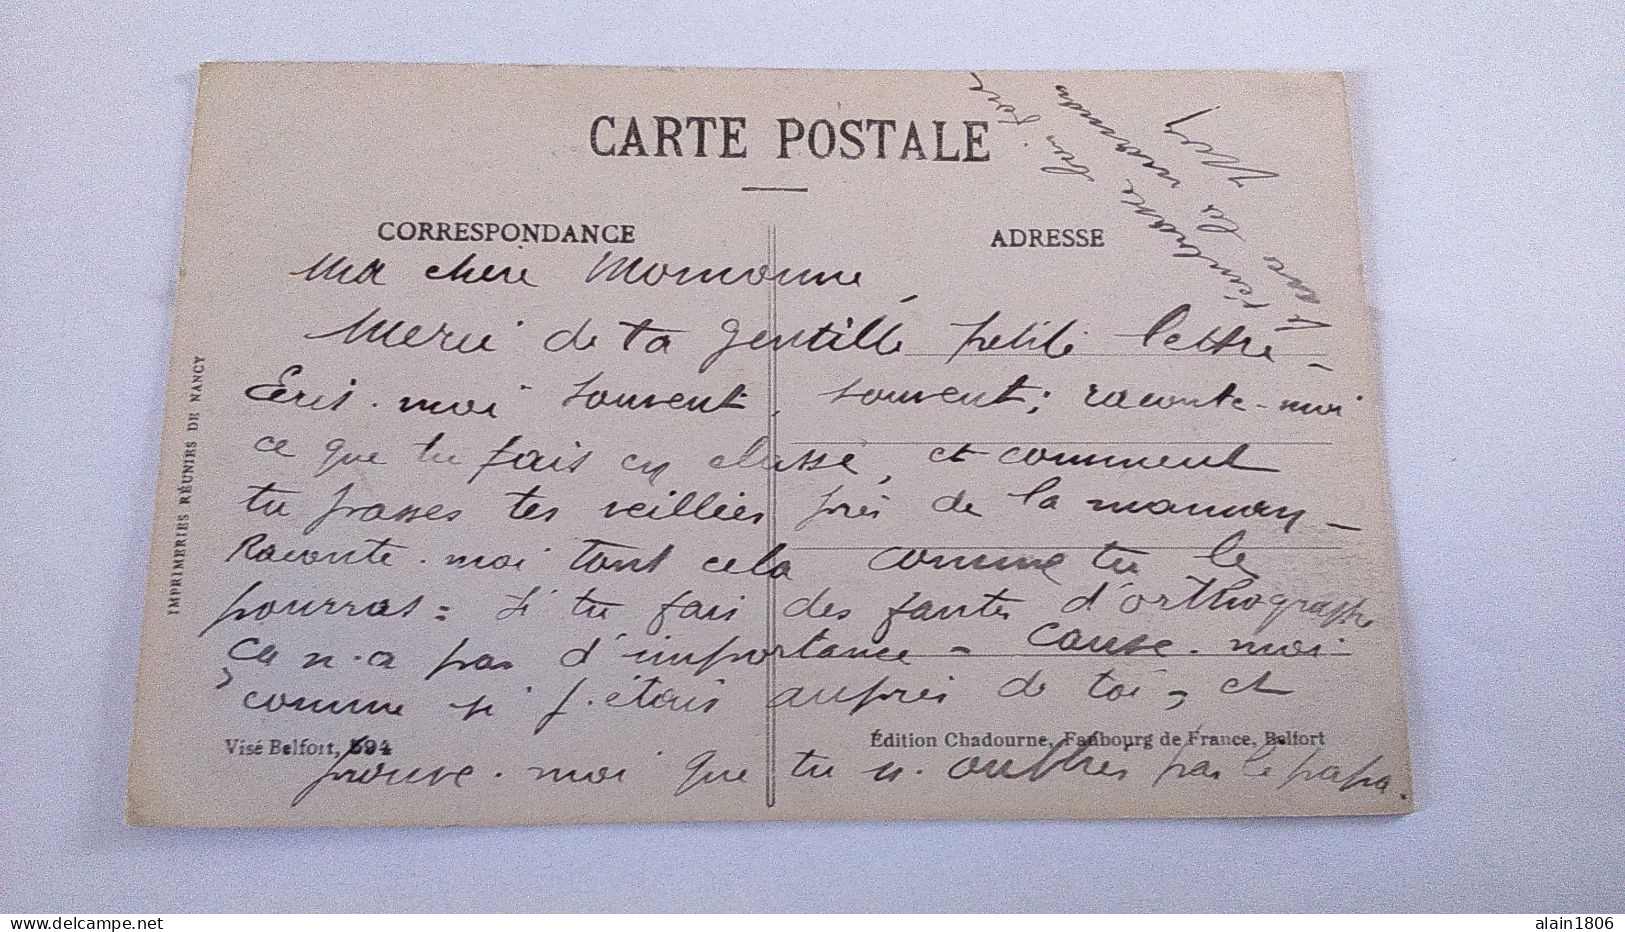 CARTE POSTALE
CORRESPONDANCE
ADRESSE
Ma chère Momonne,
Merci de ta gentille petite lettre -
Ecris-moi souvent, souvent; raconte-moi
ce que tu fais en classe, et comment
tu passes tes veillées près de la maman -
Raconte-moi tout cela comme tu le
pourras = Si tu fais des fautes d'orthographe
ça n'a pas d'importance - Cause-moi
comme si j'étais auprès de toi, et
prouve-moi que tu n'oublies pas le papa.
t'embrasse bien fort
Visé Belfort, 594
Édition Chadourne, Faubourg de France, Belfort
IMPRIMERIES RÉUNIES DE NANCY
alain1806